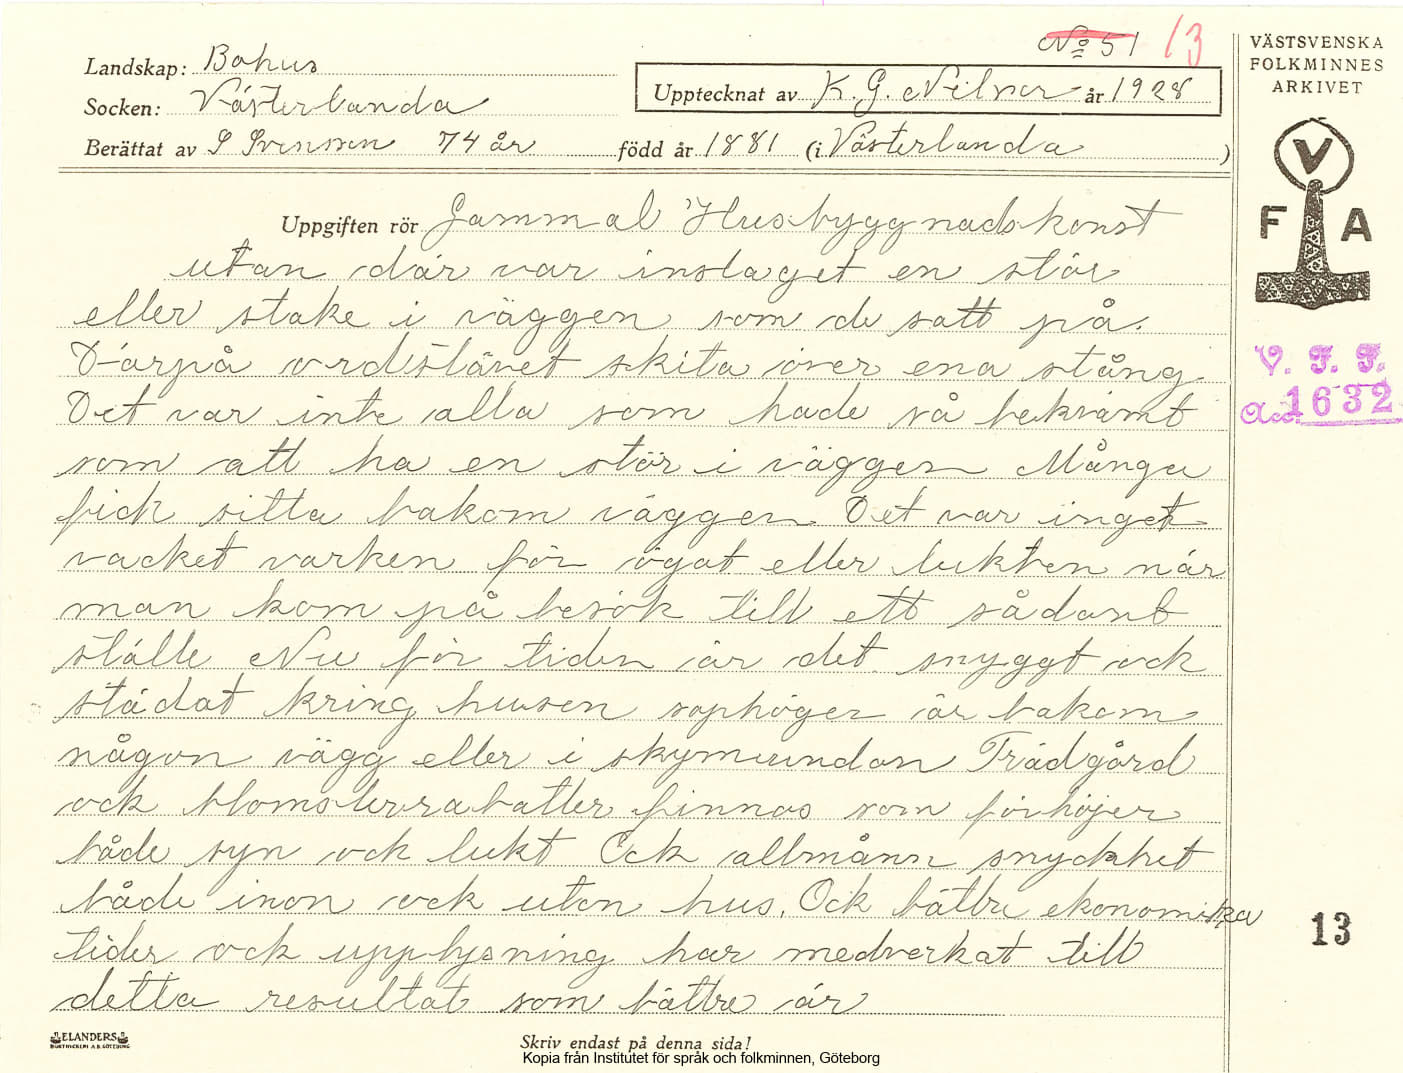 No 51 13
Landskap: Bohus
Socken: Västerlanda
Upptecknat av K. G. Nilson år 1928
Berättat av S Svensson 74 år född år 1881 (i Västerlanda )
Uppgiften rör Gammal Husbyggnadskonst
utan där var inslaget en stör
eller stake i väggen som de satt på.
Därpå ordstävet skita över ena stång
Det var inte alla som hade så bekvämt
som att ha en stör i väggen Många
fick sitta bakom väggen Det var inget
vacket varken för ögat eller lukten när
man kom på besök till ett sådant
ställe Nu för tiden är det snyggt ock
städat kring husen sophögen är bakom
någon vägg eller i skymundan Trädgård
ock blomsterrabatter finnas som förhöjer
både syn ock lukt Ock allmänn snyckhet
både inon ock uton hus. Ock bättre ekonomiska
tider ock upplysning har medverkat till
detta resultat som bättre är
ELANDERS
BOKTRYCKERI A.B. GÖTEBORG
Skriv endast på denna sida!
Kopia från Institutet för språk och folkminnen, Göteborg
VÄSTSVENSKA
FOLKMINNES
ARKIVET
V
F A
V. F. F.
Acc. 1632
13